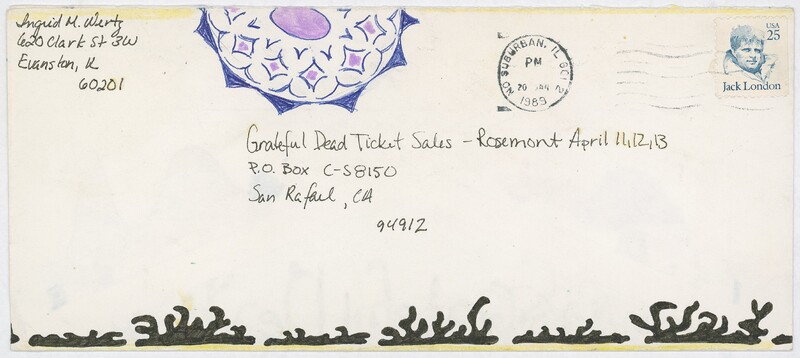 Ingrid M. Wertz
620 Clark St 3W
Evanston, IL
60201
NO SUBURBAN, IL 601 2
PM
20 JAN
1989
USA
25
Jack London
Grateful Dead Ticket Sales - Rosemont April 11, 12, 13
P.O. Box C-S8150
San Rafael, CA
94912